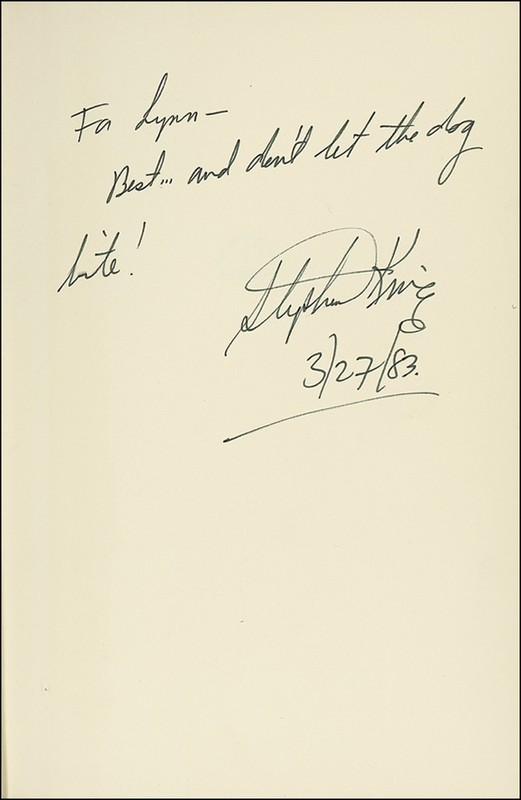 For Lynn—
Best... and don't let the dog
bite!
Stephen King
3/27/83.